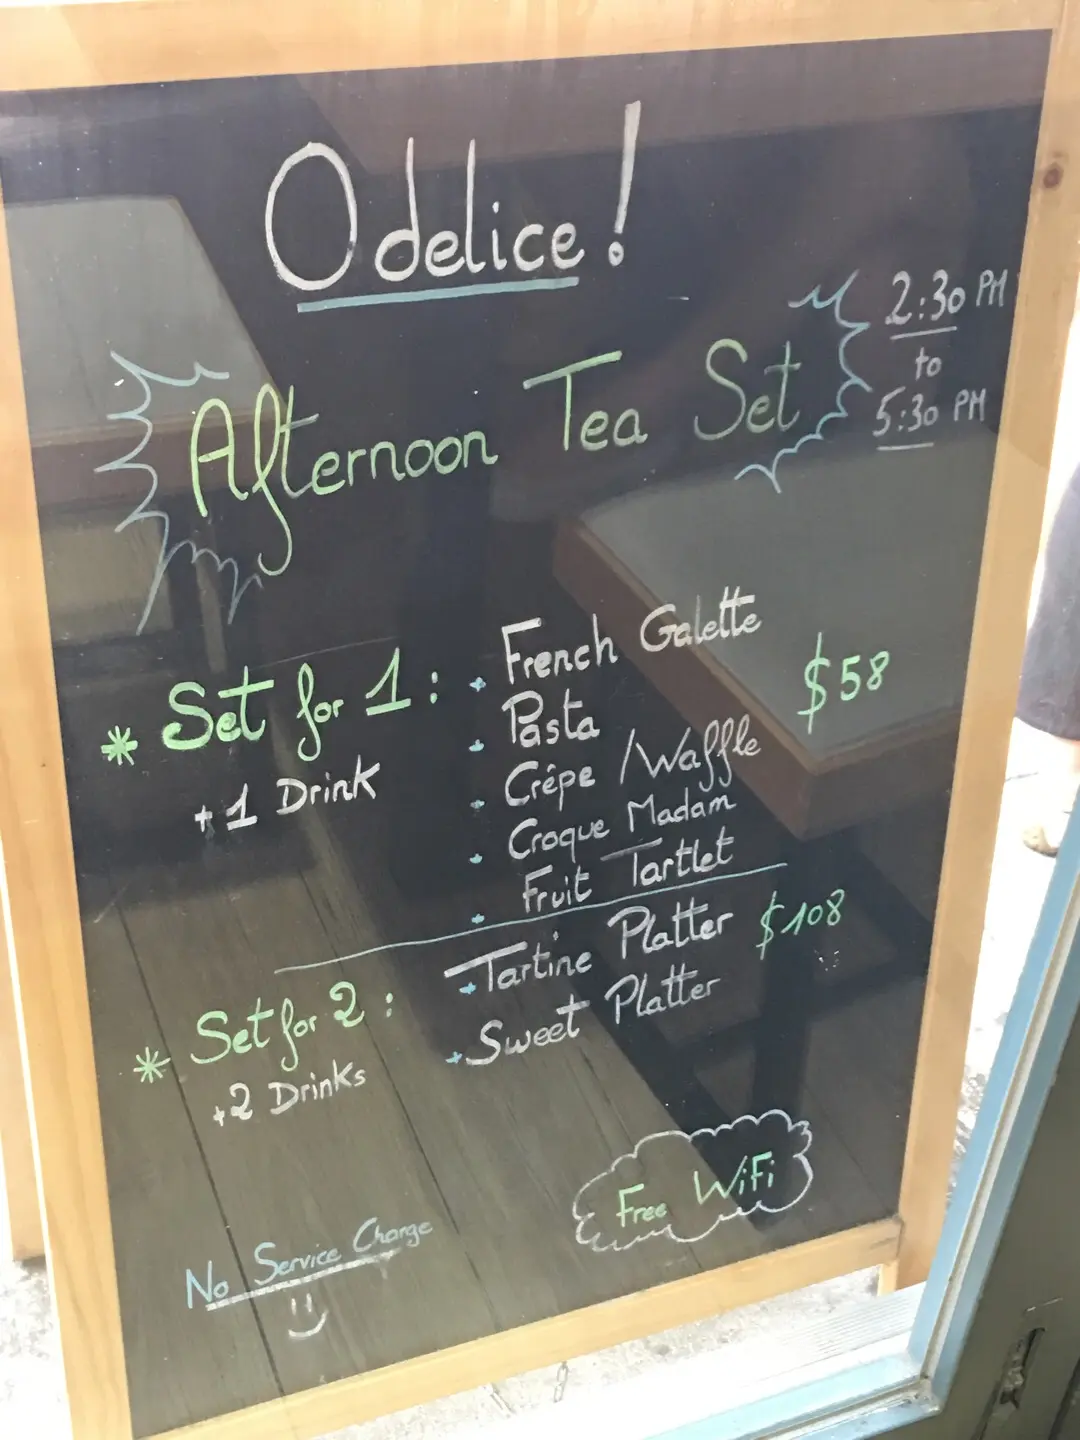 Odelice!
Afternoon Tea Set
2:30 PM
to
5:30 PM
* Set for 1:
+ 1 Drink
French Galette
Pasta
Crêpe / Waffle
Croque Madam
Fruit Tartlet
$58
* Set for 2:
+2 Drinks
Tartine Platter
Sweet Platter
$108
Free WiFi
No Service Charge